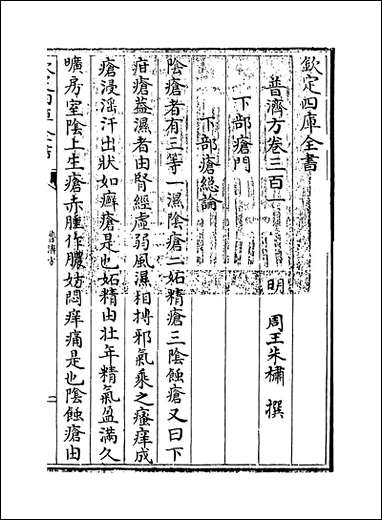 欽定四庫全書
普濟方卷三百一
明 周王朱橚 撰
下部瘡門
下部瘡總論
陰瘡者有三等一濕陰瘡二妬精瘡三陰蝕瘡又曰下
疳瘡葢濕者由腎經虛弱風濕相搏邪氣乘之瘙痒成
瘡浸淫汗出狀如癬瘡是也妬精由壯年精氣盈滿久
曠房室陰上生瘡赤腫作膿妨悶痒痛是也陰蝕瘡由
普濟方